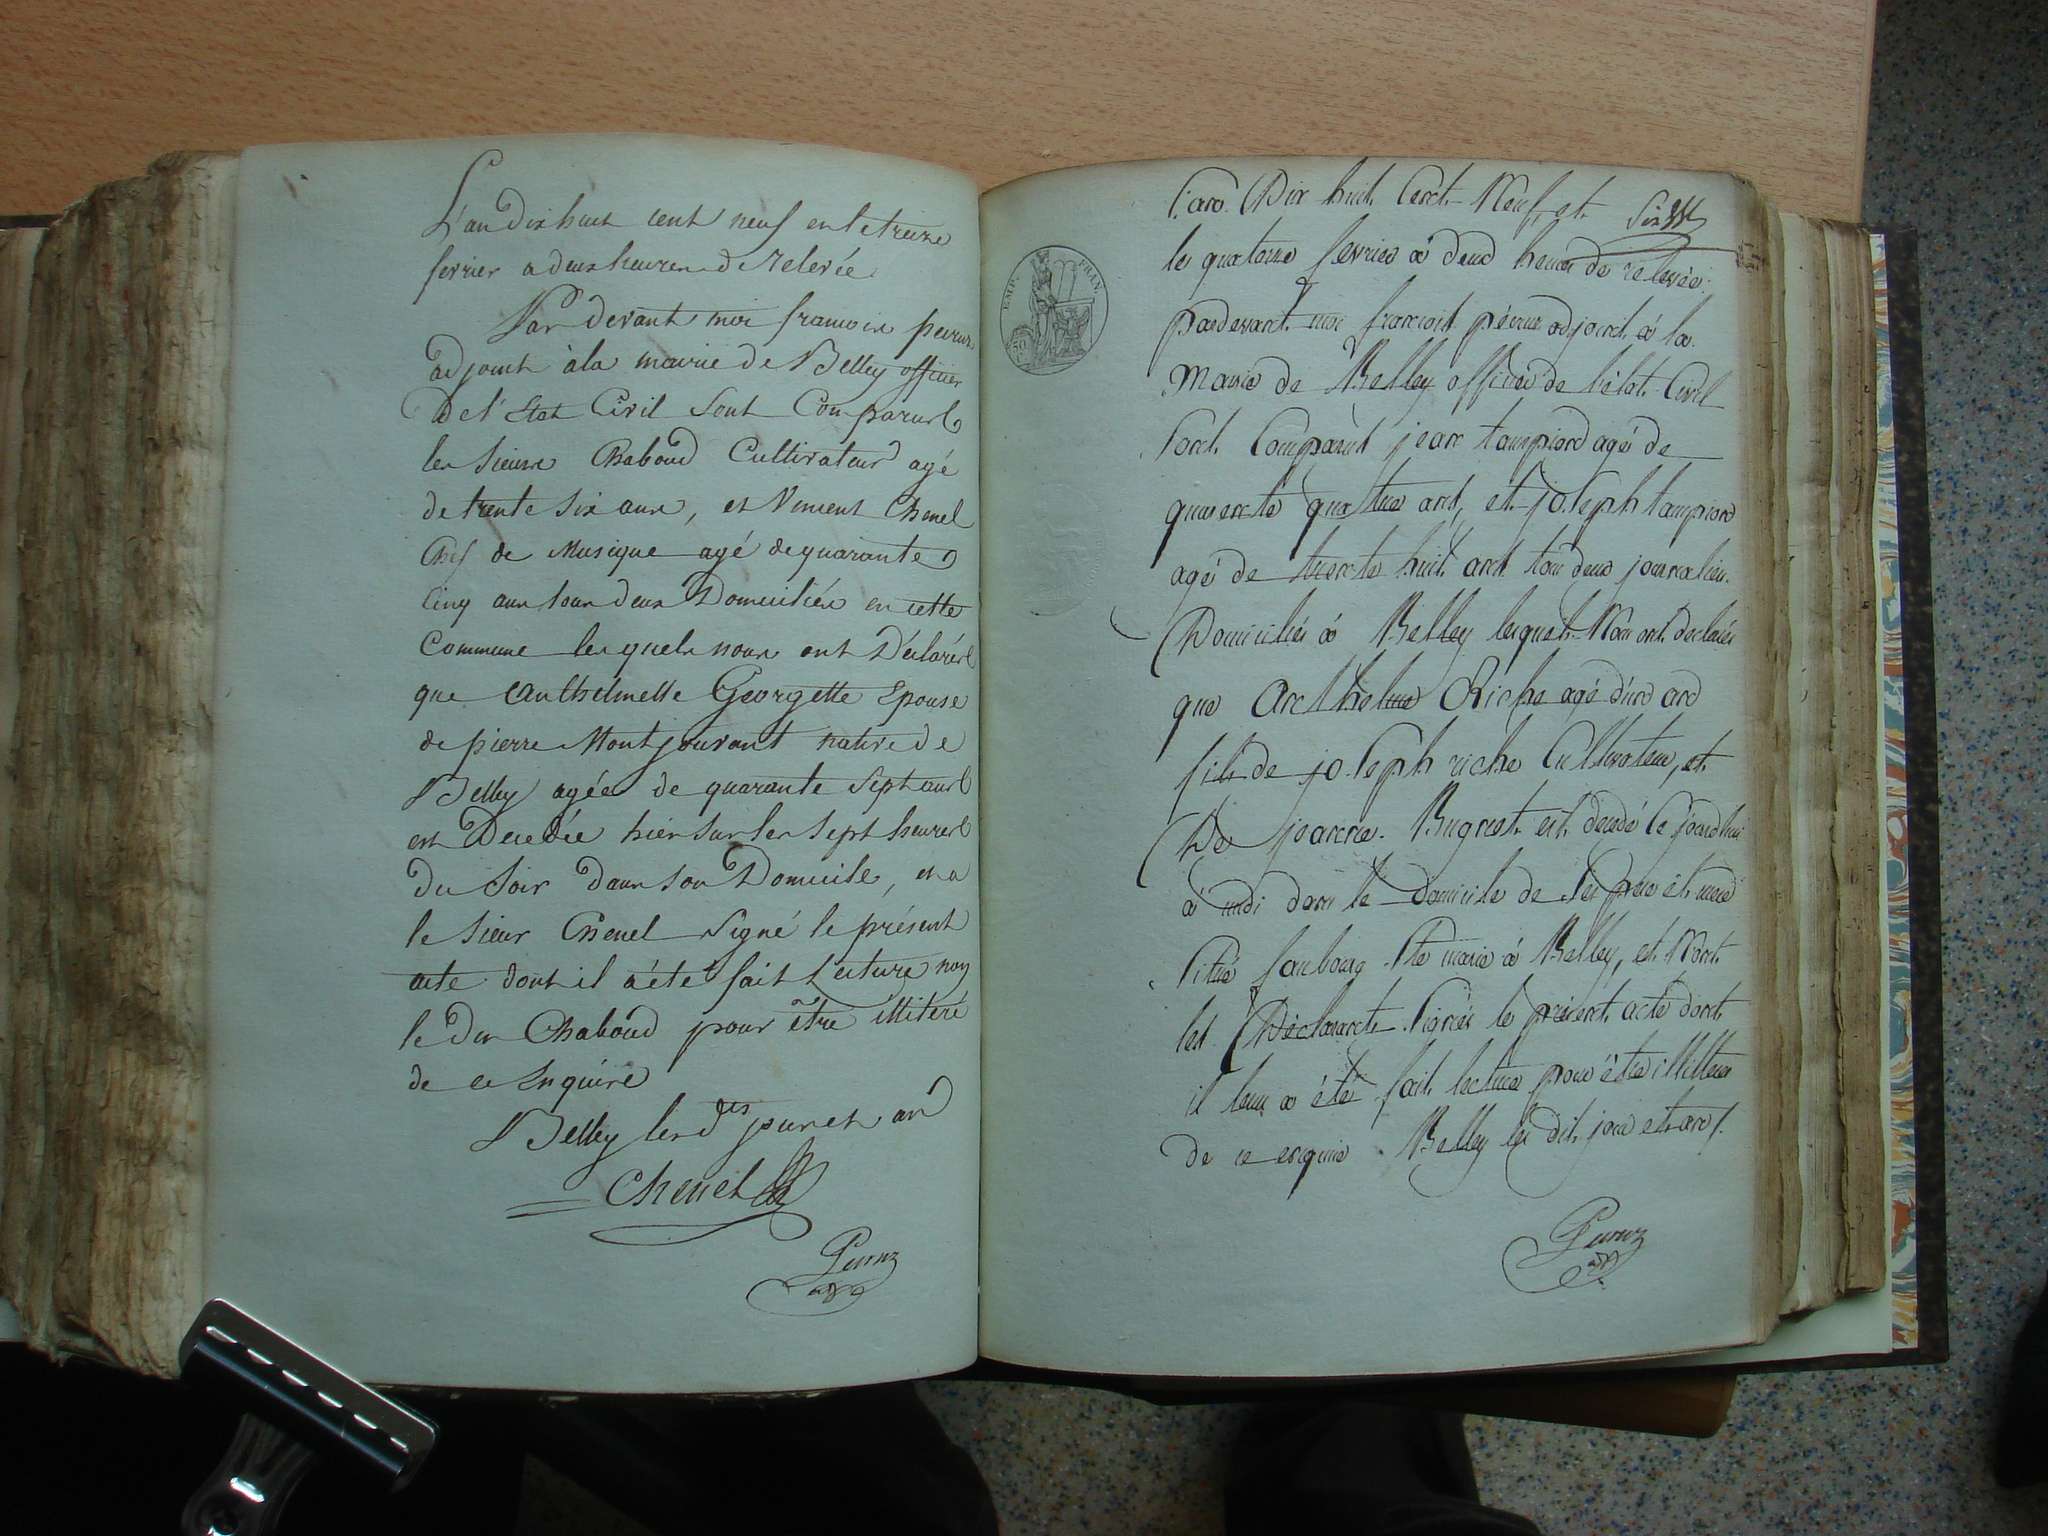 L'an dix huit cent neuf en le treize
fevrier a deux heures de relevée
Par devant moi francois peruz
adjoint à la mairie de Belley officier
de l'Etat Civil sont Comparus
les sieurs Chaboud Cultivateur agé
de trente six ans, et Vincent Chenel
Chef de Musique agé de quarante
Cinq ans tous deux Domiciliés en cette
Commune les quels nous ont Déclarés
que Anthelmette Georgette Epouse
de pierre Montjouvant native de
Belley agée de quarante Sept ans
est Decedée hier sur les sept heures
du Soir dans son Domicile, et a
le Sieur Chenel Signé le présent
acte dont il a été fait Lecture non
le dit Chaboud pour être illiteré
de ce Enquire
Belley les d jour et an
Chenel
Peruz
l'an Dix huit Cent Neuf, et Six
le quatorze fevrier à deux heures de relevée
pardevant moi francois péruz adjoint à la
Mairie de Belley officier de l'état Civil
Sont Comparut jean tampion agé de
quarente quatre ans, et joseph tampion
agé de trente huit ans tous deux journalier
Domiciliés à Belley lesquels Nous ont declarés
que Anthelme Riche agé d'un an
fils de joseph riche Cultivateur, et
De joanne Bugnet est décédé Ce jourd'hui
à midi dans le domicile de ses pere et mere
Situé faubourg Ste marie à Belley, et N'ont
les Déclarants Signés le présent acte dont
il leur a été fait lecture pour être illitteré
de ce enquire Belley les dit jour et an
Peruz
EMP. FRAN.